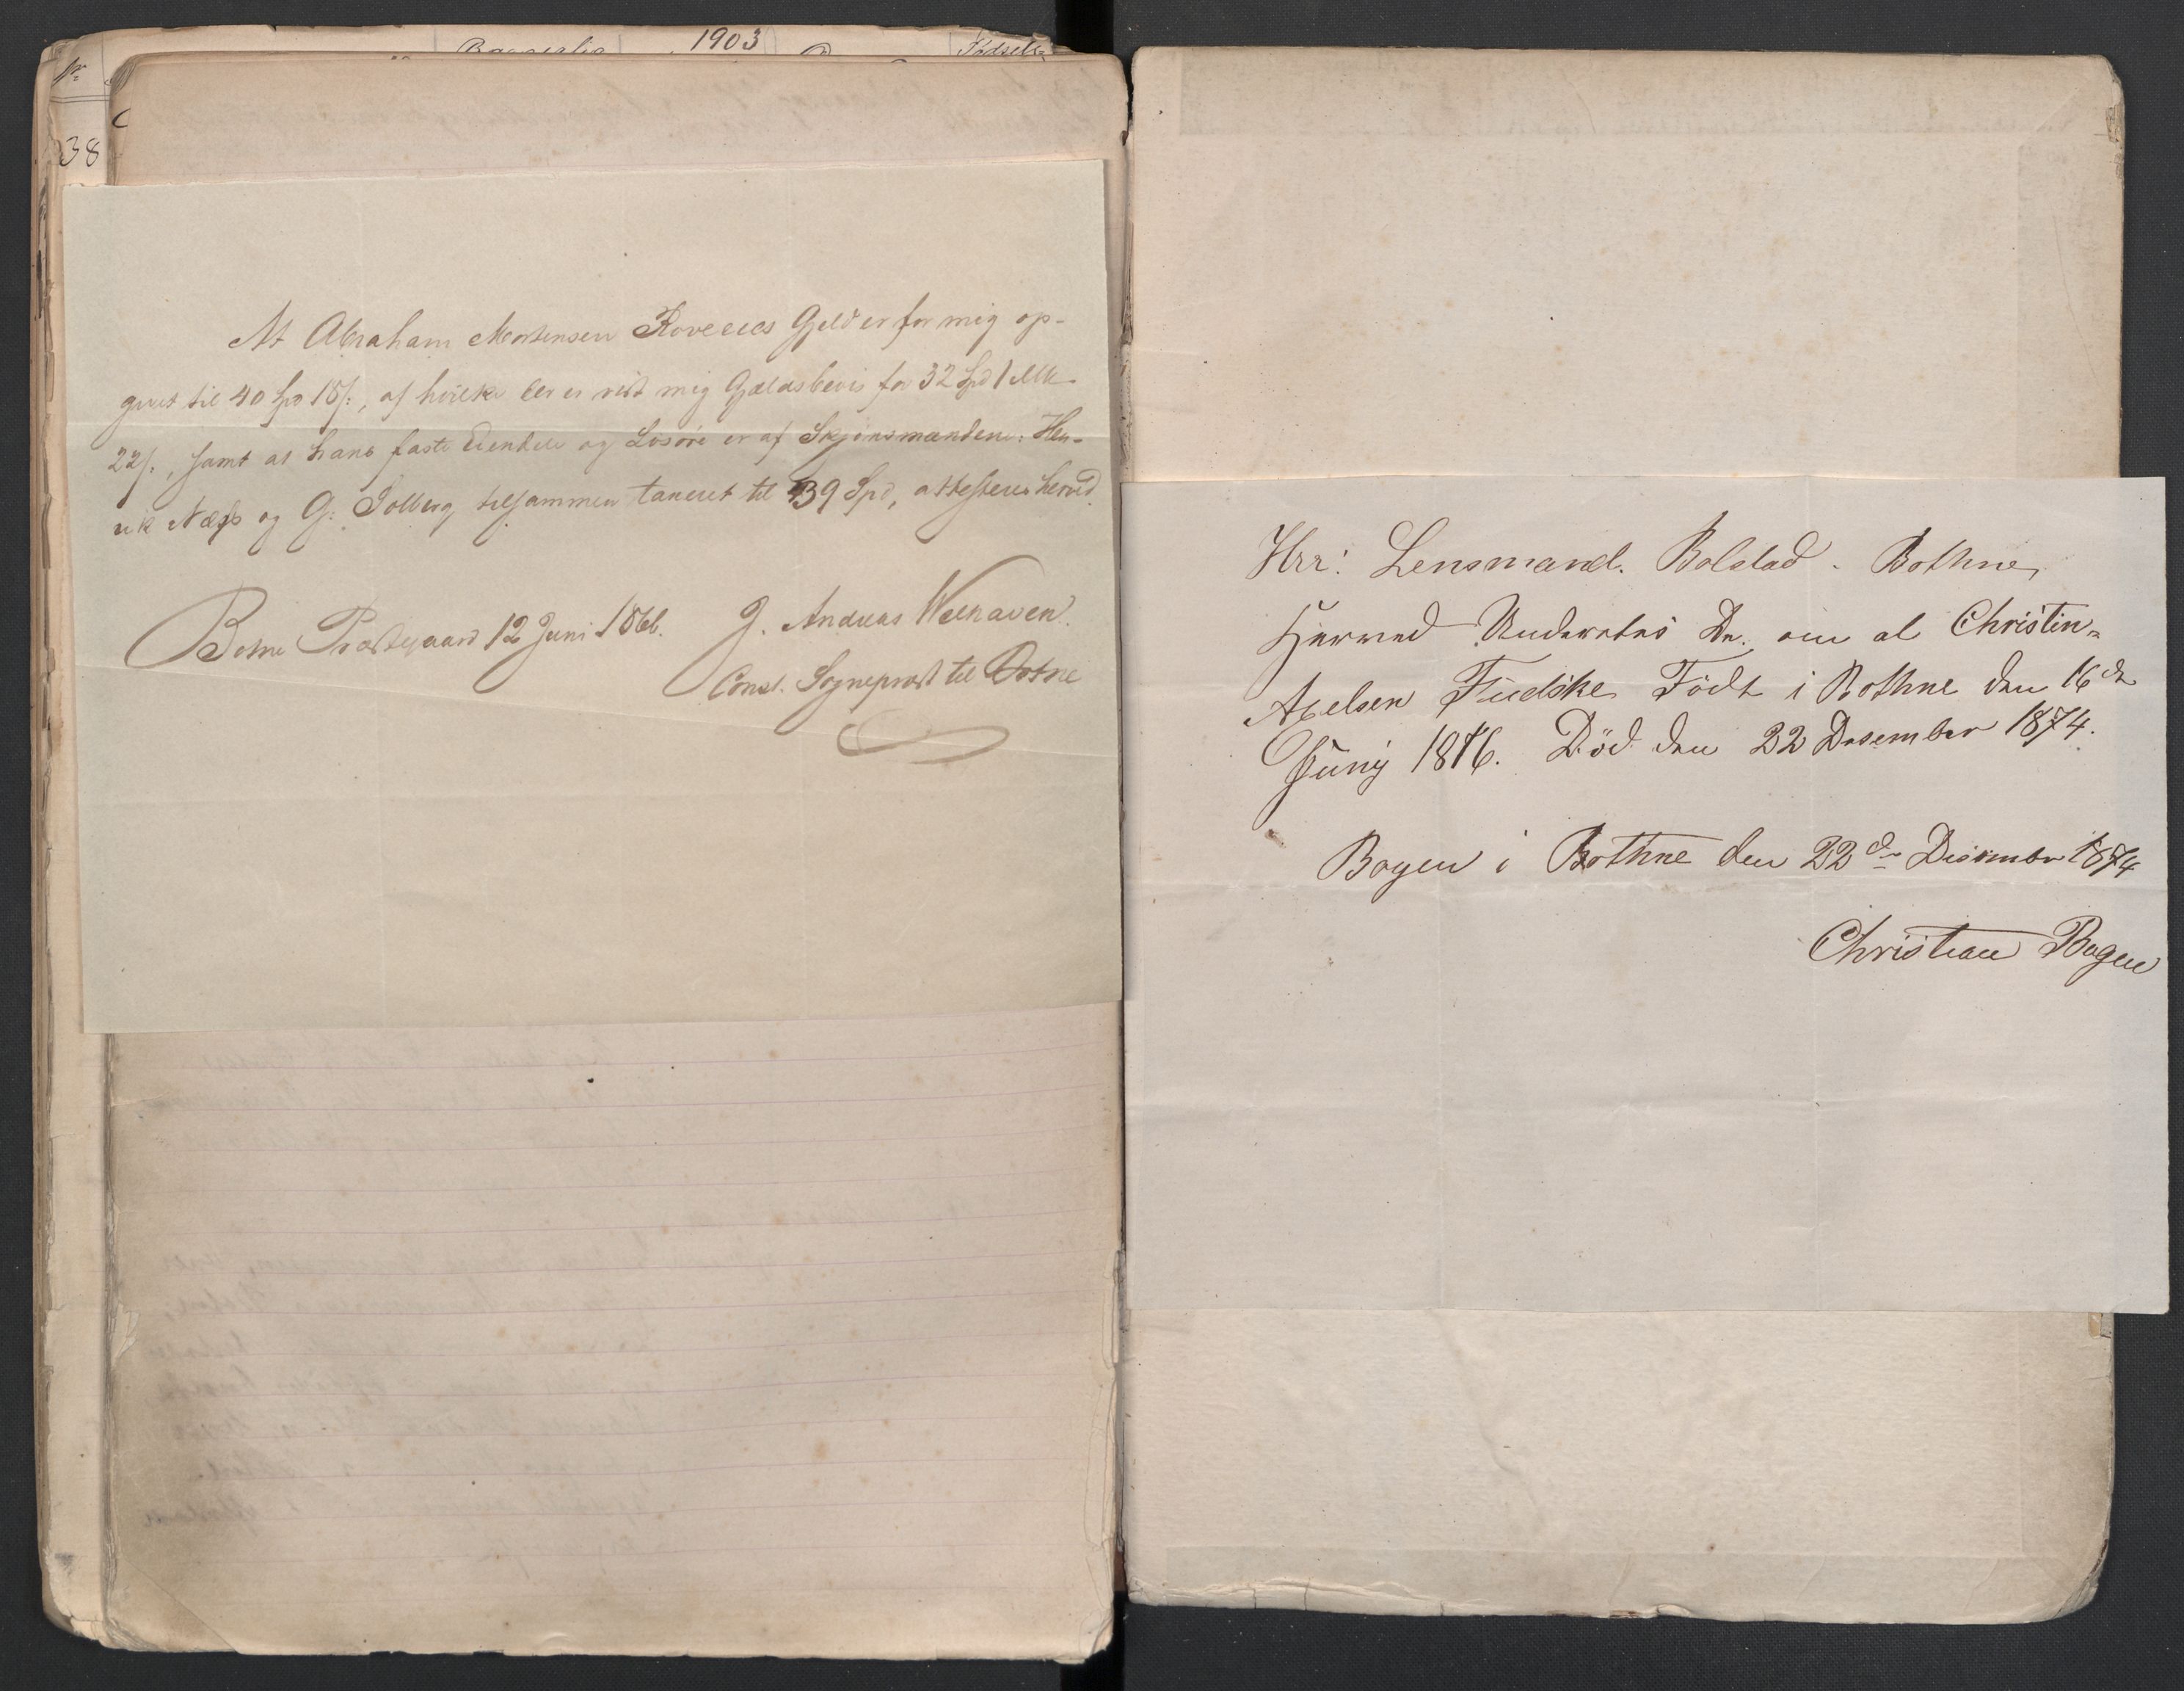 1903
Nr
38
At Abraham Mortensen Roveeies Gjeld er for mig op-
givet til 40 Spd 18 s:, af hvilke der er vist mig Gjældsbevis for 32 Spd 1 Mk
22 s., samt at hans faste Eiendele og Løsøre er af Skjønsmændene: Hen-
rik Næss og G. Solberg tilsammen taxeret til 39 Spd, attesteres herved.
Botne Præstegaard 12 Juni 1866. J. Andreas Welhaven.
Const. Sognepræst til Botne
Hrr: Lensmand. Bolstad. Bothne
Herved Underretes De. om at Christin=
Axelsen Fudske Födt i Bothne den 16de
Junij 1816. Död den 22 Desember 1874.
Bogen i Bothne den 22de Desember 1874
Christian Bogen